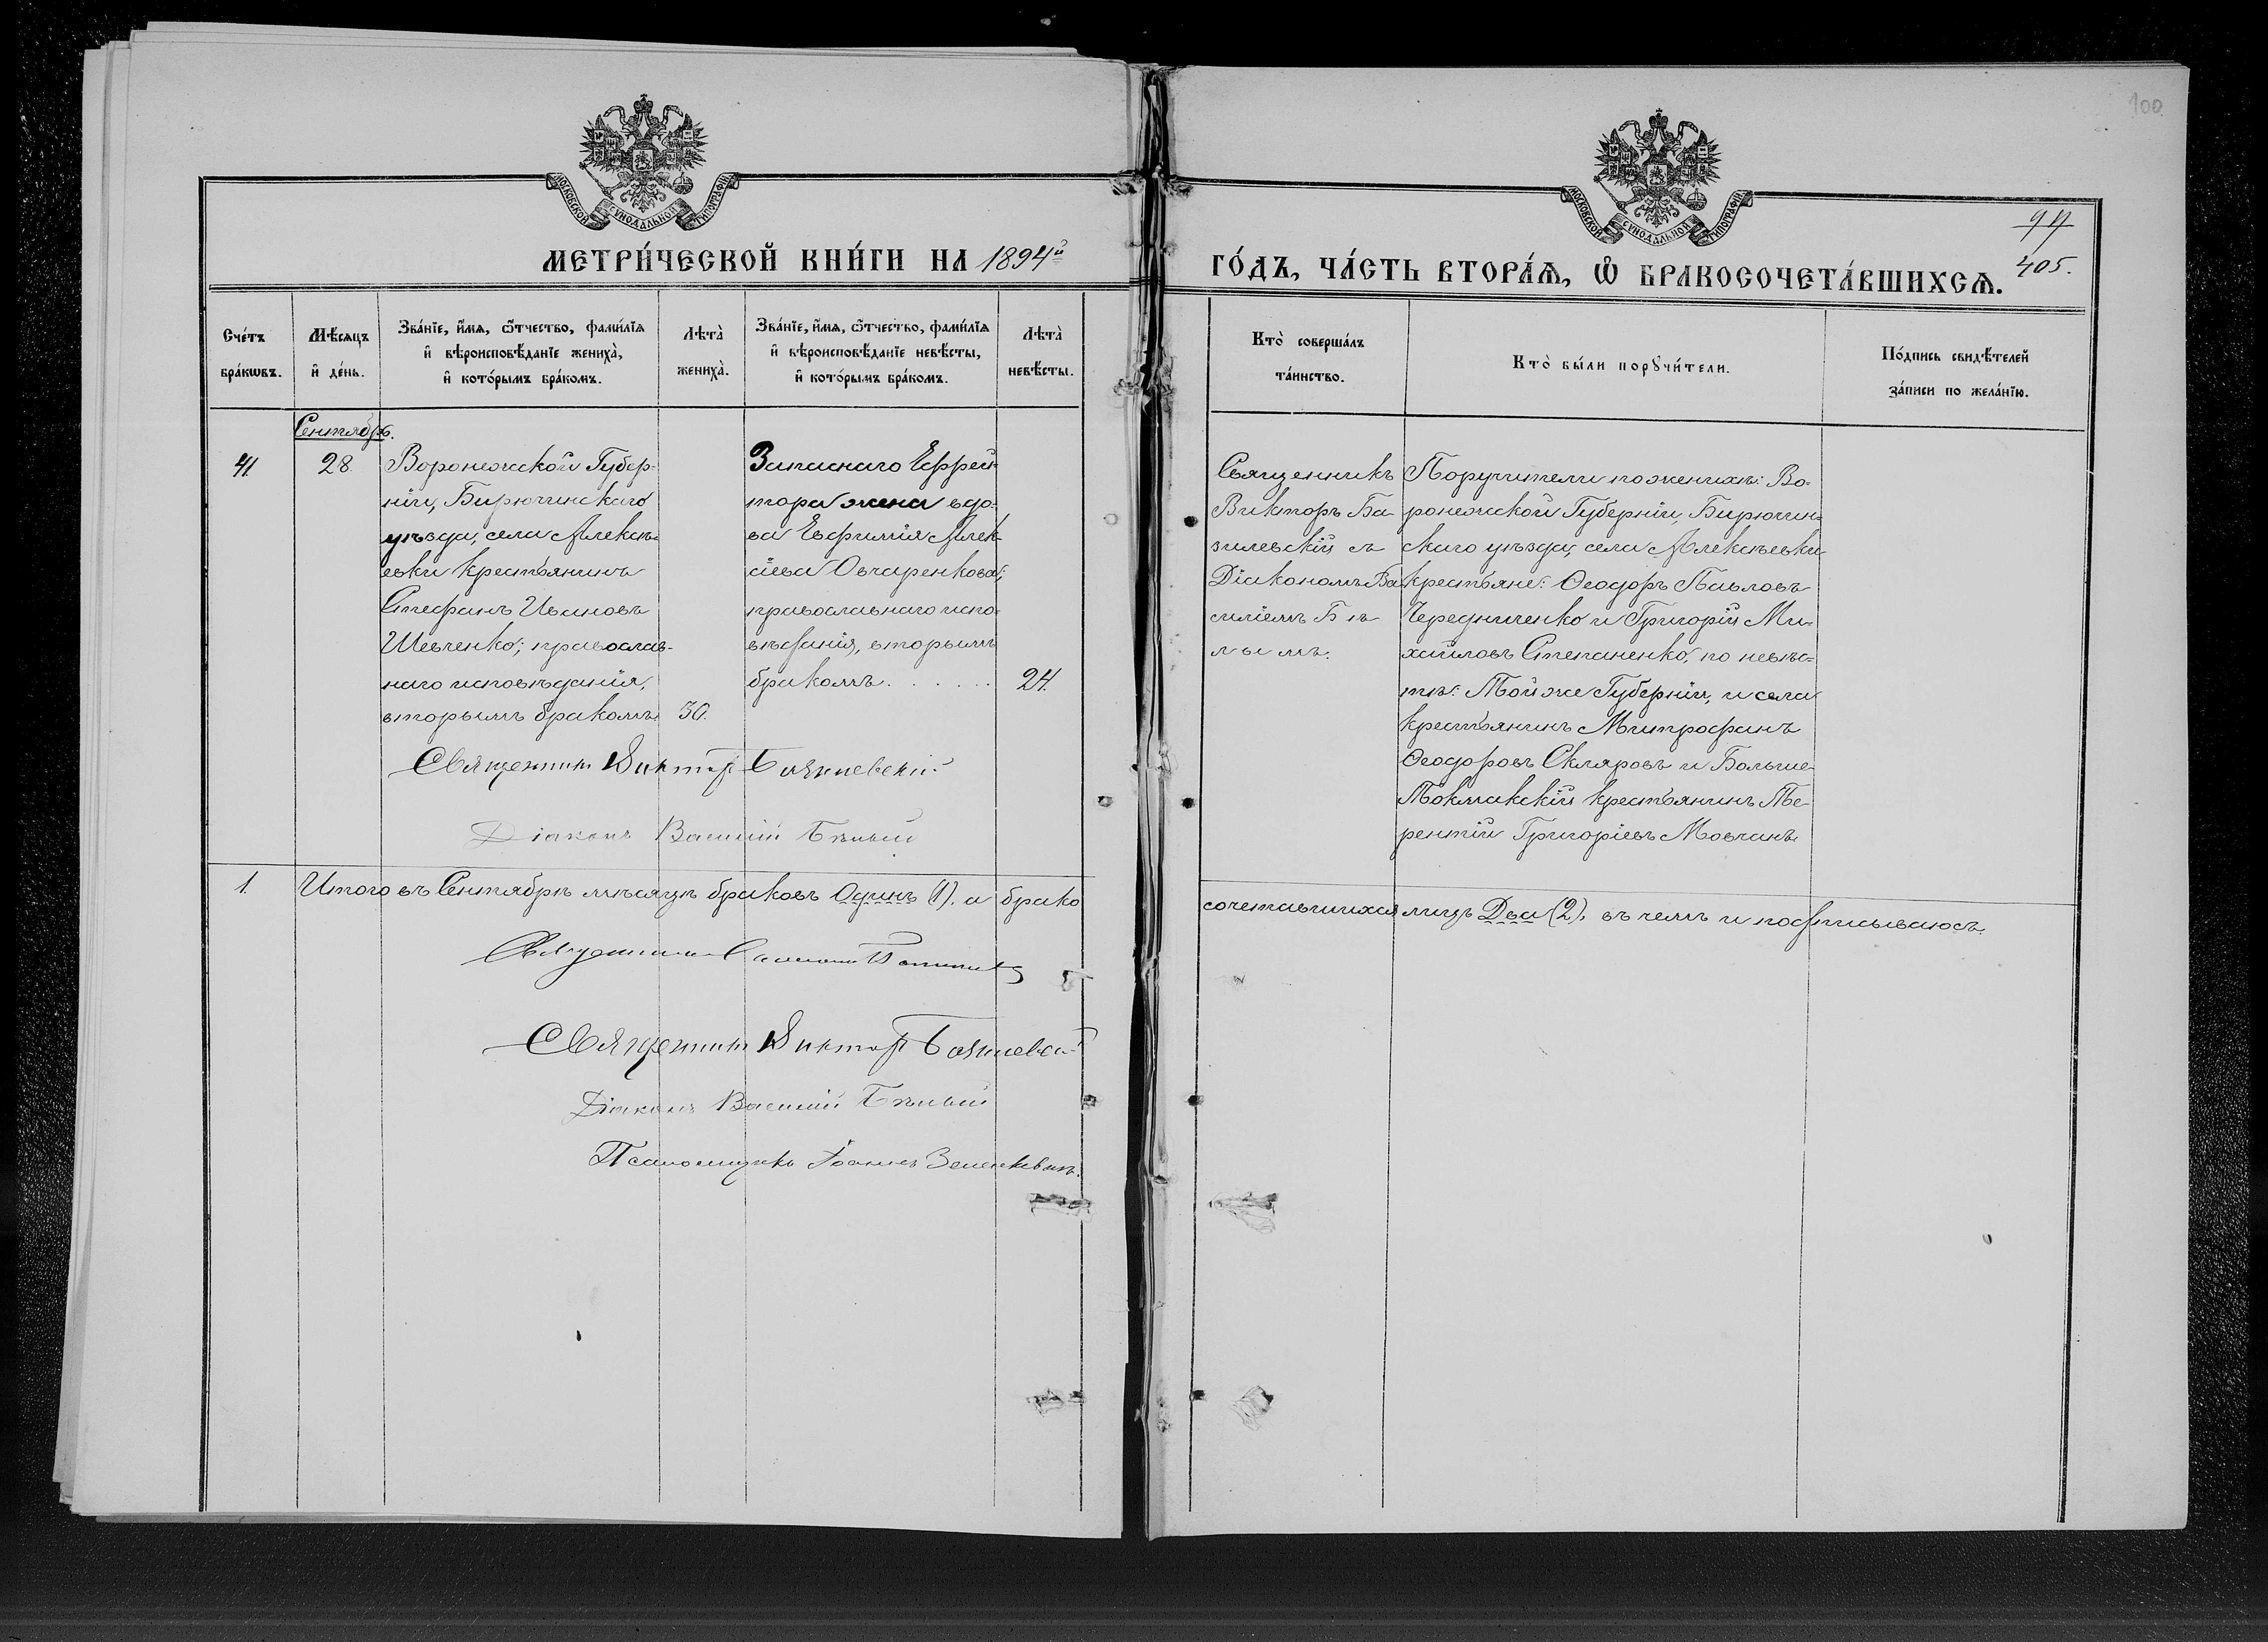 100
МОСКОВСКОЙ СѴНОДАЛЬНОЙ ТИПОГРАФІИ
МОСКОВСКОЙ СѴНОДАЛЬНОЙ ТИПОГРАФІИ
МЕТРИ́ЧЕСКОЙ КНИ́ГИ НА 1894й
ГО́ДЪ, ЧА́СТЬ ВТОРА́Ѧ, Ѡ҆ БРАКОСОЧЕТА́ВШИХСѦ.
94
405.
Сче́тъ бра́кѡвъ.
Мѣ́сѧцъ и҆ де́нь.
Зва́нїе, и҆́мѧ, ѻ҆́тчество, фами́лїѧ и҆ вѣроисповѣ́данїе жениха̀, и҆ кото́рымъ бра́комъ.
Лѣта̀ жениха̀.
Зва́нїе, и҆́мѧ, ѻ҆́тчество, фами́лїѧ и҆ вѣроисповѣ́данїе невѣ́сты, и҆ кото́рымъ бра́комъ.
Лѣта̀ невѣ́сты.
Кто̀ соверша́лъ та́инство.
Кто̀ бы́ли порꙋчи́тели.
По́дпись свидѣ́телей за́писи по жела́нїю.
Сентябрь.
41
28.
Воронежской Губер-
ніи, Бирючинскаго
уѣзда, села Алексѣ-
евки крестьянинъ
Стефанъ Ивановъ
Шевченко; православ-
наго исповѣданія,
вторымъ бракомъ.
30.
Запаснаго Ефрей-
тора жена вдо-
ва Евфимія Алек-
сіева Овчаренкова;
православнаго испо-
вѣданія, вторымъ
бракомъ . . . . . .
24.
Священникъ
Викторъ Ба-
зилевскій съ
Діакономъ Ва
силіемъ Бѣ
лымъ.
Поручители по женихѣ: Во-
ронежской Губерніи, Бирючин-
скаго уѣзда, села Алексѣевки
крестьяне: Ѳеодоръ Павловъ
Чередниченко и Григорій Ми-
хайловъ Степаненко, по невѣс-
тѣ: Той же Губерніи, и села
крестьянинъ Митрофанъ
Ѳеодоровъ Скляровъ и Больше-
Токмакскій крестьянинъ Те-
рентій Григоріевъ Мовчанъ.
Священникъ Викторъ Базилевскій
Діаконъ Василій Бѣлый
1.
Итого въ Сентябрѣ мѣсяцѣ браковъ Одинъ (1). а брако
сочетавшихся лицъ Два (2), въ чемъ и подписываюсь.
Священникъ
Священникъ Викторъ Базилевскій
Діаконъ Василій Бѣлый
Псаломщикъ Іоаннъ